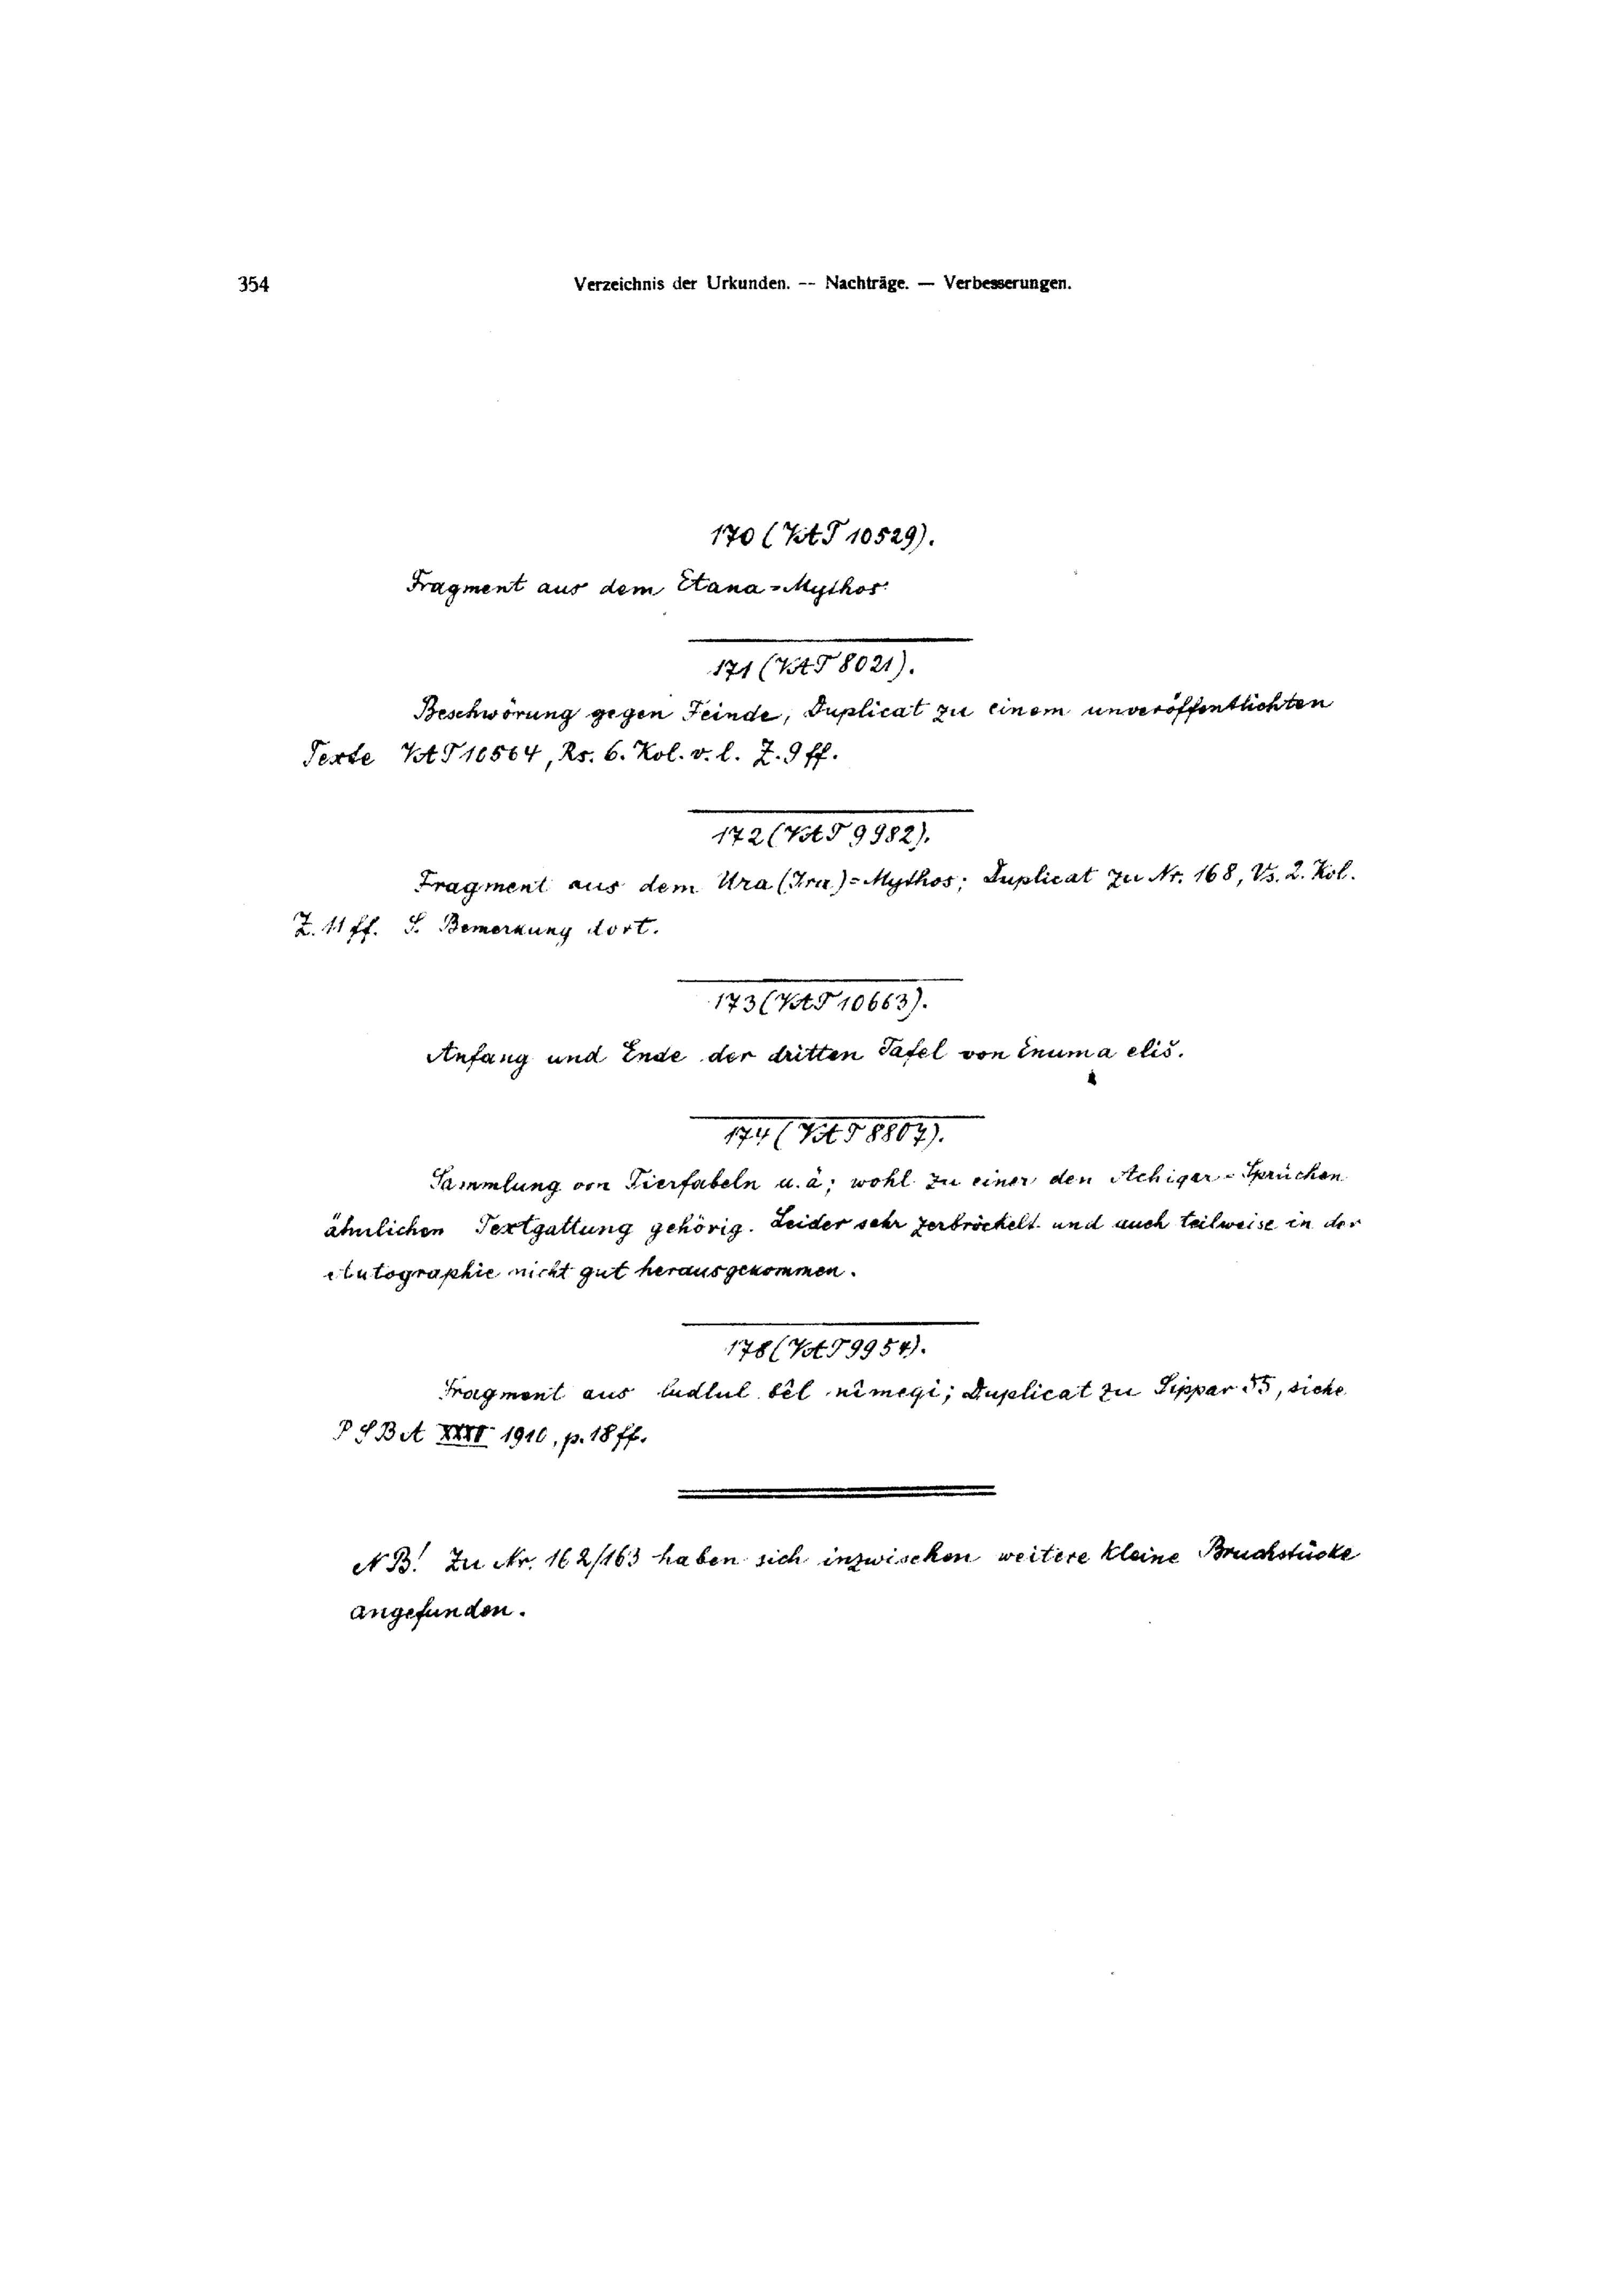 354
Verzeichnis der Urkunden. -- Nachträge. — Verbesserungen.
170 (VAT 10529).
Fragment aus dem Etana-Mythos
171 (VAT 8021).
Beschwörung gegen Feinde, Duplicat zu einem unveröffentlichten
Texte VAT 10564, Rs. 6. Kol. v. l. Z. 9 ff.
172 (VAT 9982).
Fragment aus dem Ura (Ira)-Mythos; Duplicat zu Nr. 168, Vs. 2. Kol.
Z. 11 ff. S. Bemerkung dort.
173 (VAT 10663).
Anfang und Ende der dritten Tafel von Enuma eliš.
174 (VAT 8807).
Sammlung von Tierfabeln u. ä; wohl zu einer den Achiqar-Sprüchen
ähnlichen Textgattung gehörig. Leider sehr zerbröckelt und auch teilweise in der
Autographie nicht gut herausgekommen.
178 (VAT 9954).
Fragment aus ludlul bêl nîmeqi; Duplicat zu Sippar 55, siehe
PSBA 1910, p. 18 ff.
NB! Zu Nr. 162/163 haben sich inzwischen weitere kleine Bruchstücke
angefunden.